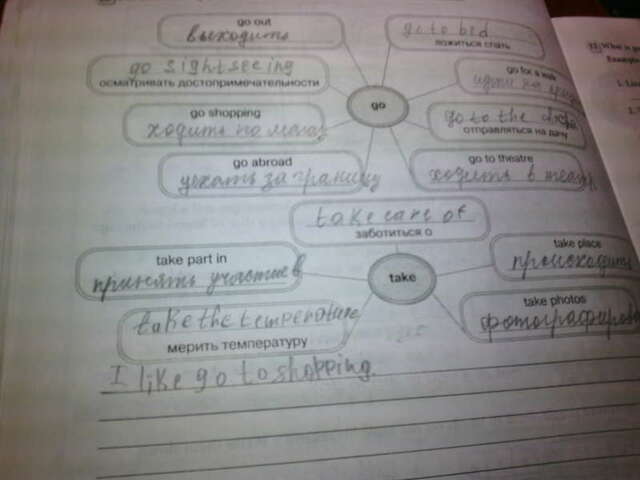 go out
выходить
go to bed
ложиться спать
go sightseeing
осматривать достопримечательности
go for a walk
идти на
go shopping
ходить по мага
go
go to the
отправляться на дачу
go abroad
уехать за границу
go to theatre
ходить в театр
take care of
заботиться о
take part in
принять участие в
take
take place
происходить
take the temperature
мерить температуру
take photos
фотографирова
I like go to shopping
12. What is
Example
1.